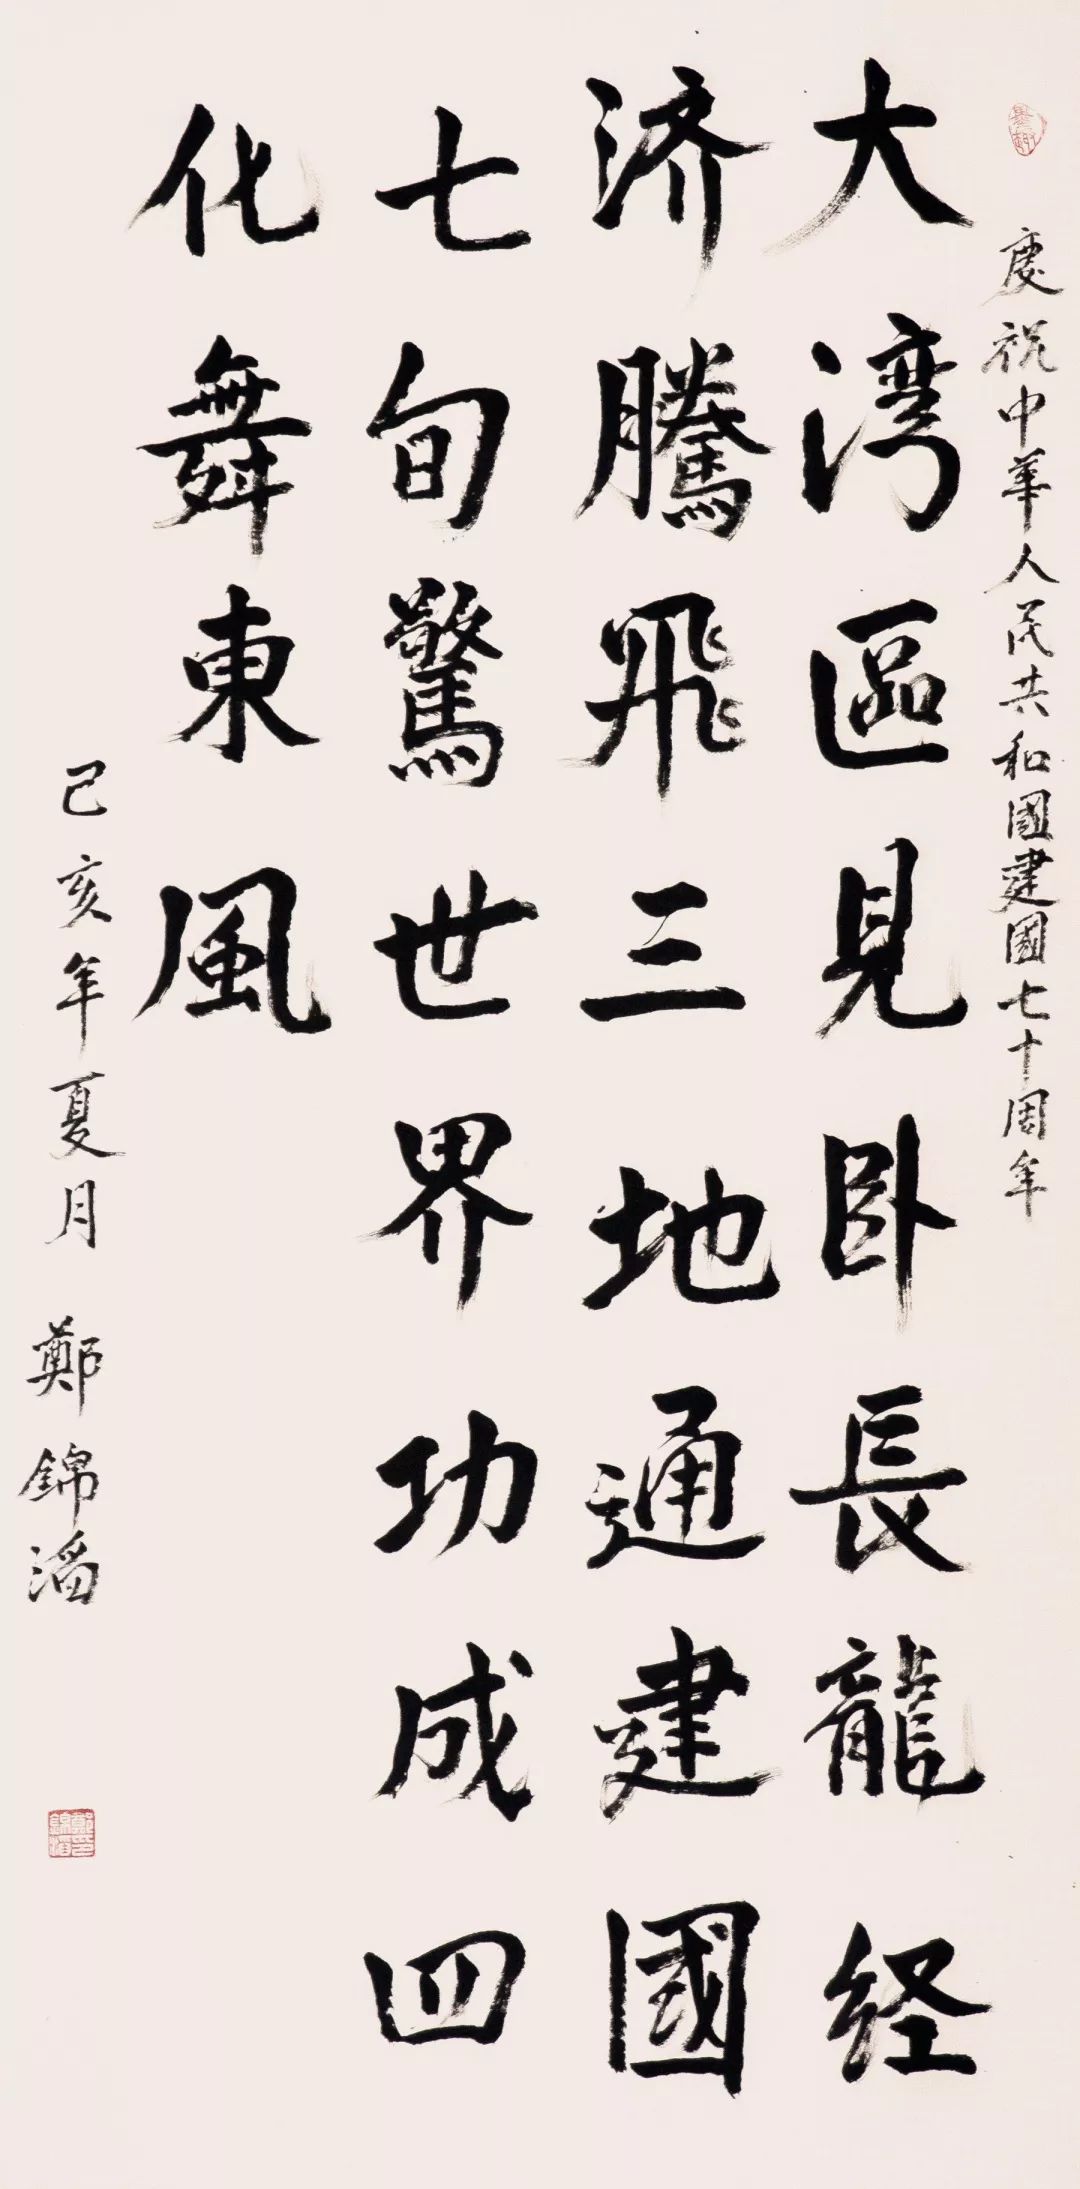 慶祝中華人民共和國建國七十周年
大湾區見卧長龍经
济騰飛三地通建國
七旬驚世界功成四
化舞東風
己亥年夏月 鄭錦滔
鄭印錦滔